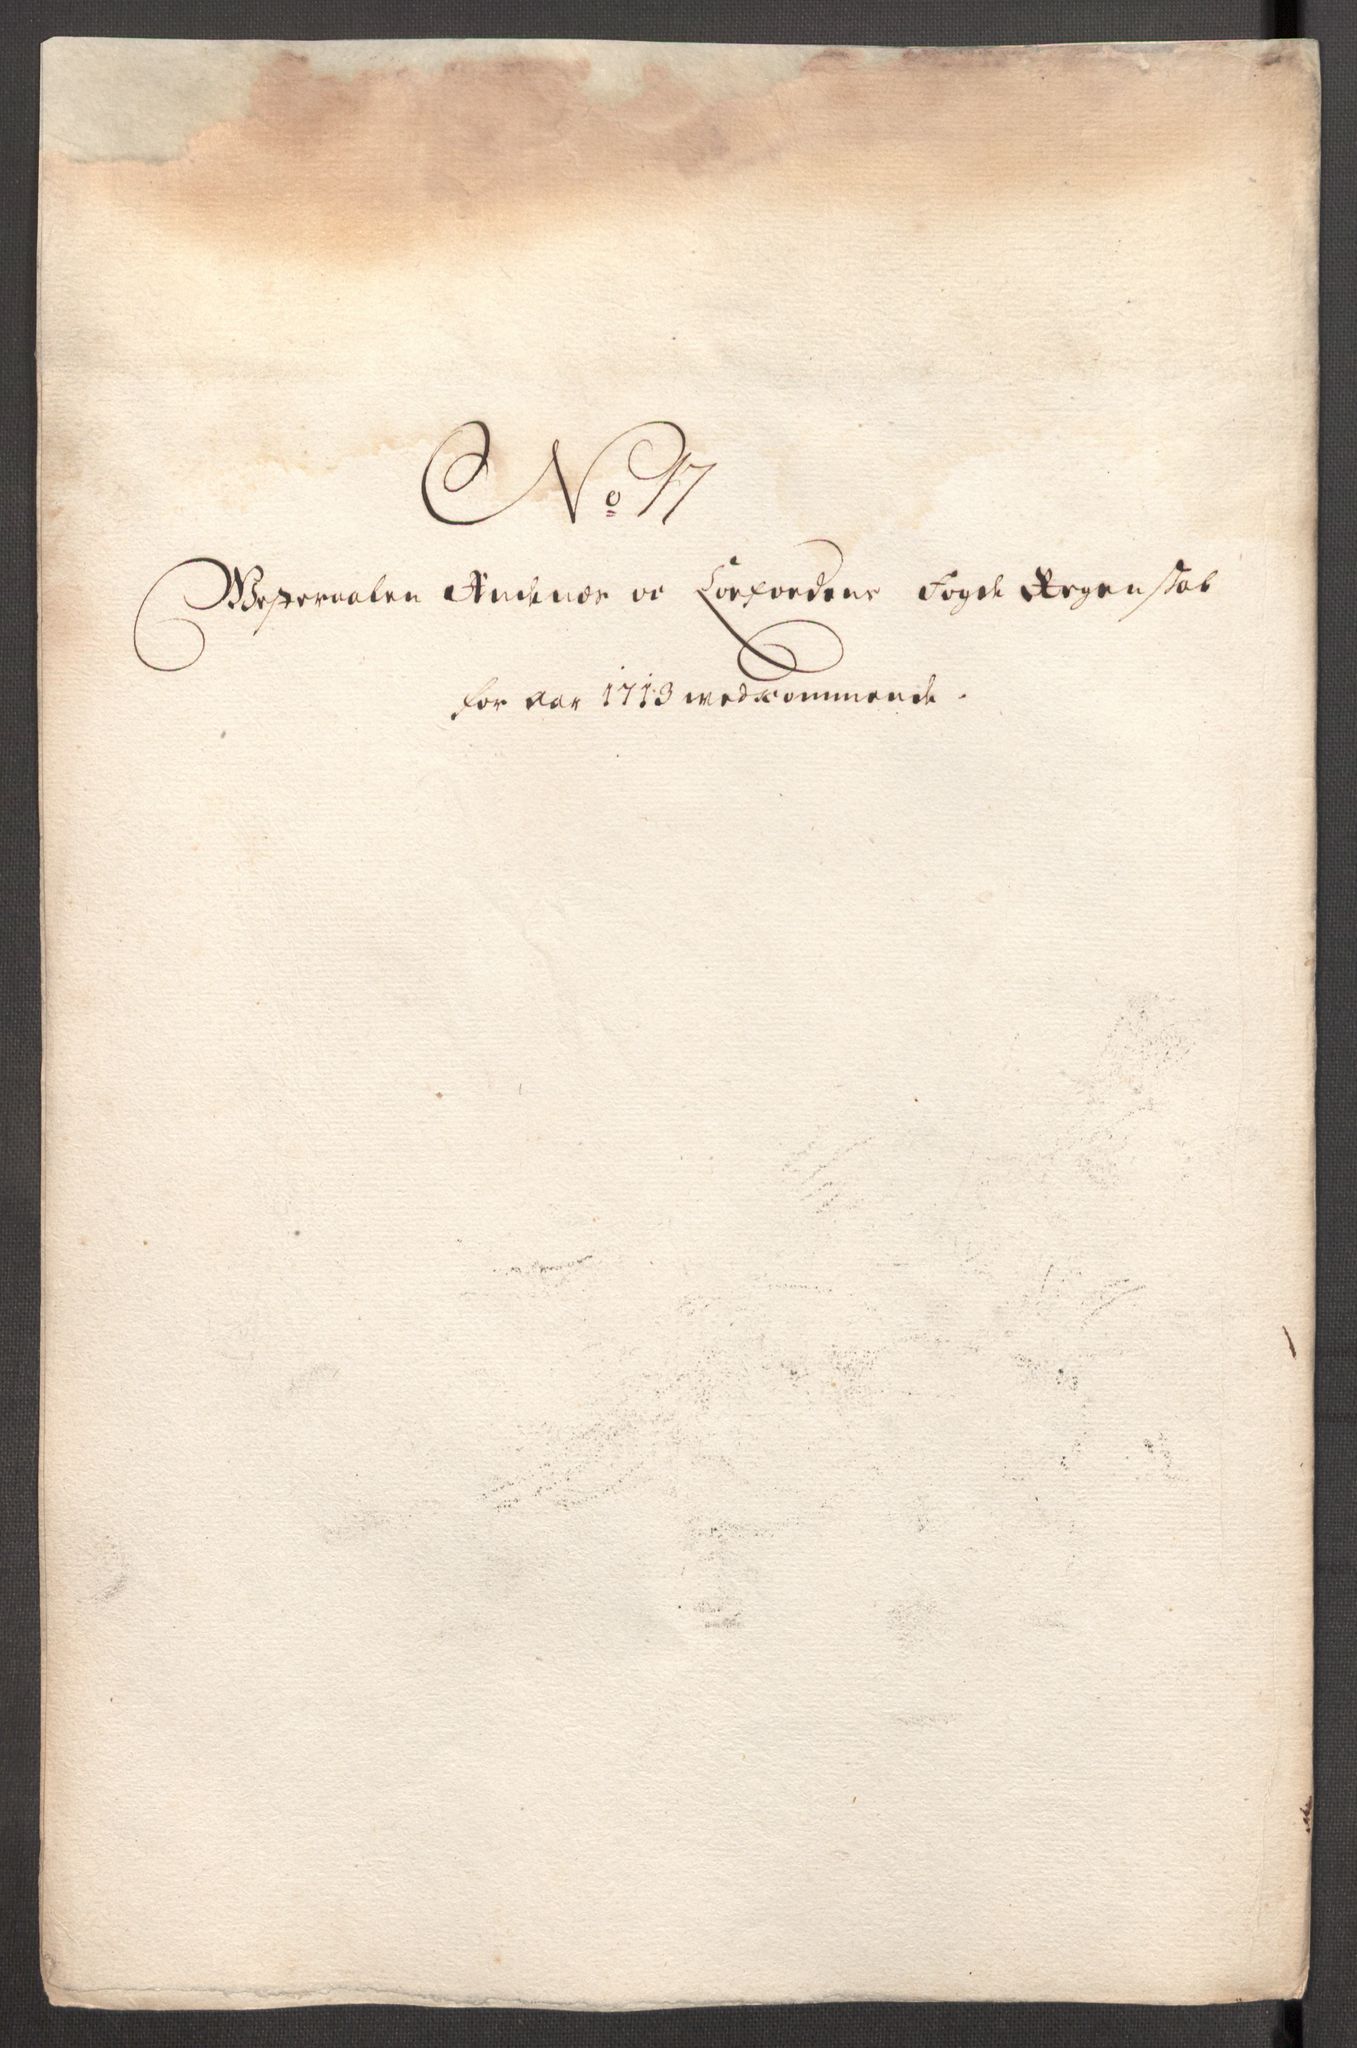 No 17
Westeraalen Andenæs oc Loffoedens Fogde Regenskab
for aar 1713 vedkommende.